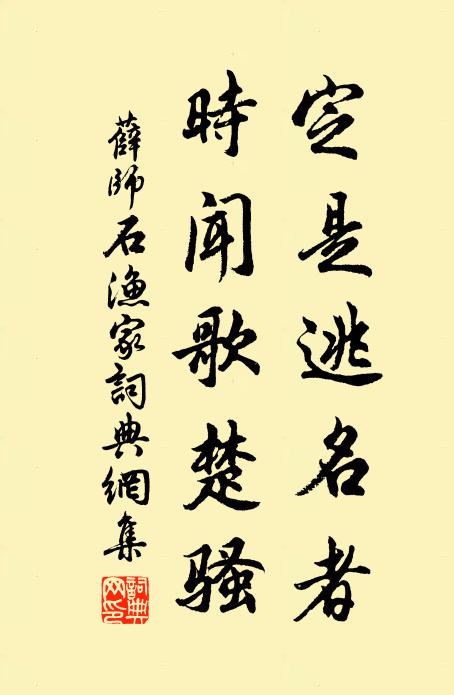 定是逃名者
時聞歌楚騷
薛師石漁家詞典網集
詞典網印